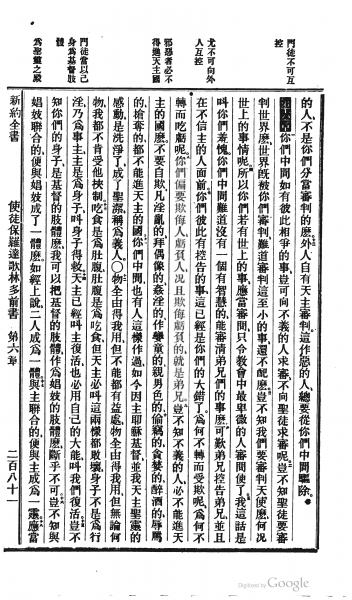 門徒不可互
控
尤不可向外
人互控
邪惡者必不
得進天主國
門徒當以己
身為基督肢
體
為聖靈之殿
的人、不是你們分當審判的麽、外人自有天主審判、這作惡的人、總要從你們中間驅除。
第六章 你們中間如有彼此相爭的事、豈可向不義的人求審、不向聖徒求審呢、豈不知聖徒要審
判世界麽、世界旣被你們審判、難道審判這至小的事、還不配麽、豈不知我們要審判天使麽、何況
世上的事情呢、所以你們若有世上的事、應當審問、只令教會中最卑微的人審問便了、我這話是
叫你們羞愧、你們中間難道沒有一個有智慧的、能審清弟兄們的事麽、歎弟兄控告弟兄、並且
在不信主的人面前、你們彼此有控告的事、這已經是你們的大錯了、為何不轉而受欺呢、為何不
轉而吃虧呢、你們偏要欺侮人、虧負人、況且欺侮虧負的、就是弟兄、豈不知不義的人、必不能進天
主的國麽、不要自欺、凡淫亂的、拜偶像的、姦淫的、作孌童的、親男色的、偷竊的、貪婪的、醉酒的、辱罵
的、搶奪的、都不能進天主的國、你們中間也有人這樣作過、如今因主耶穌基督、並我天主聖靈的
感動、是洗淨了、成了聖潔、稱為義人、〇物全由得我用、但不能都有益處、物全由得我用、但無論何
物、我都不肯受他挾制、吃食是為肚腹、肚腹是為吃食、但天主必叫這兩樣都敗壞、身子不是為行
淫、乃為事主、主是為身子、叫身子得救、天主已經叫主復活、也必用自己的大能、叫我們復活、豈不
知你們的身子、是基督的肢體麽、我可以把基督的肢體、作為娼妓的肢體麽、斷乎不可、豈不知與
娼妓聯合的、便與娼妓成了一體麽、如經上說、二人成為一體、與主聯合的、便與主成為一靈、應當
新約全書 使徒保羅達歌林多前書 第六章 二百八十一
Digitized by Google